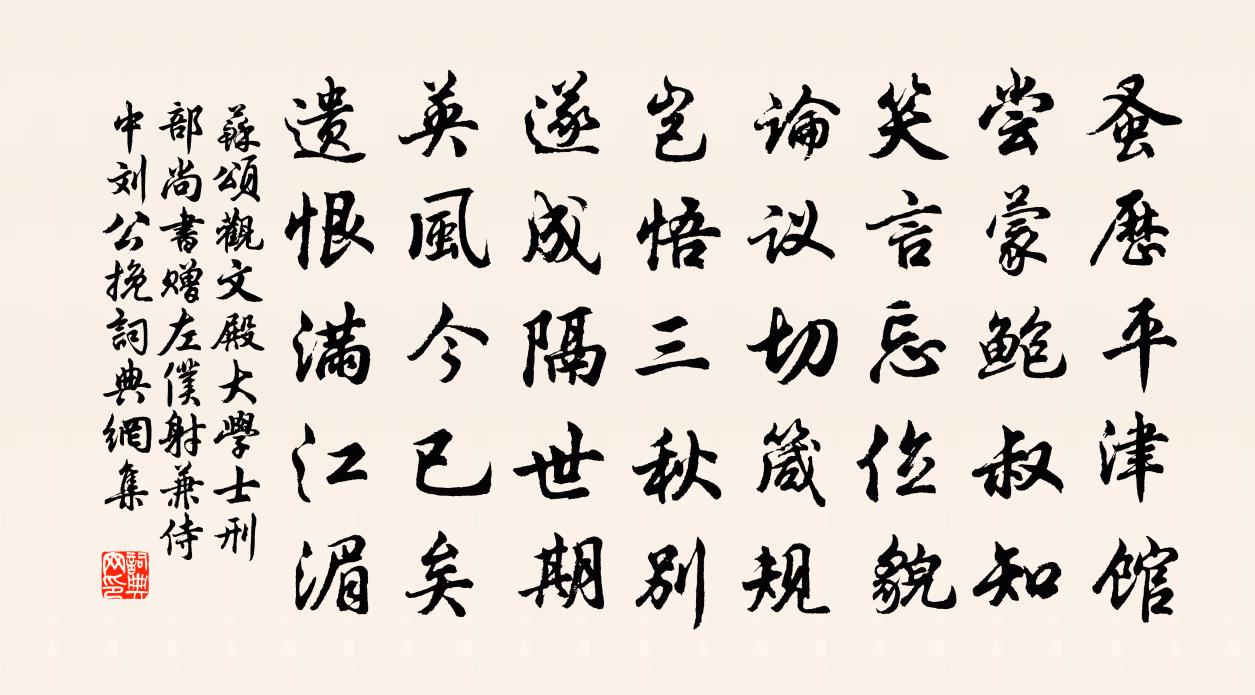 蚤歷平津館
尝蒙鲍叔知
笑言忘位貌
論议切箴規
岂悟三秋别
遂成隔世期
英風今已矣
遗恨满江湄
蘇頌觀文殿大學士刑
部尚書赠左僕射兼侍
中刘公挽詞典網集
詞典網印